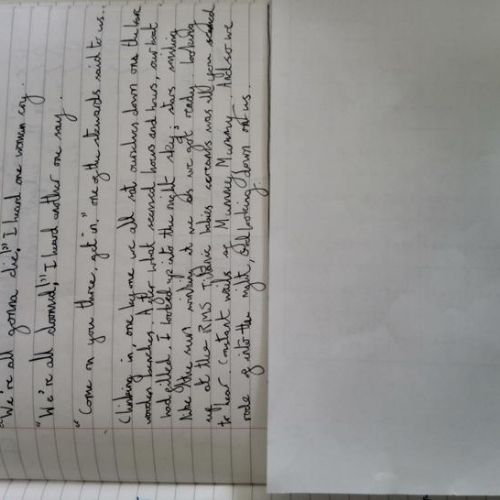 "We're all gonna die!" I heard one woman cry.
"We're all doomed!" I heard another one say.
"Come on you there, get in." one of the stewards said to us..
Climbing in, one by one we all sat ourselves down on the
wooden benches. After what seemed hours and hours, our boat
had filled. I looked up into the night sky; stars smiling
like the sun smiling at we as we got ready. Looking
up at the RMS Titanic babies screams was all you
to hear constant wails of Mummy Mummy. And so we
rode into the night, God looking down on us.